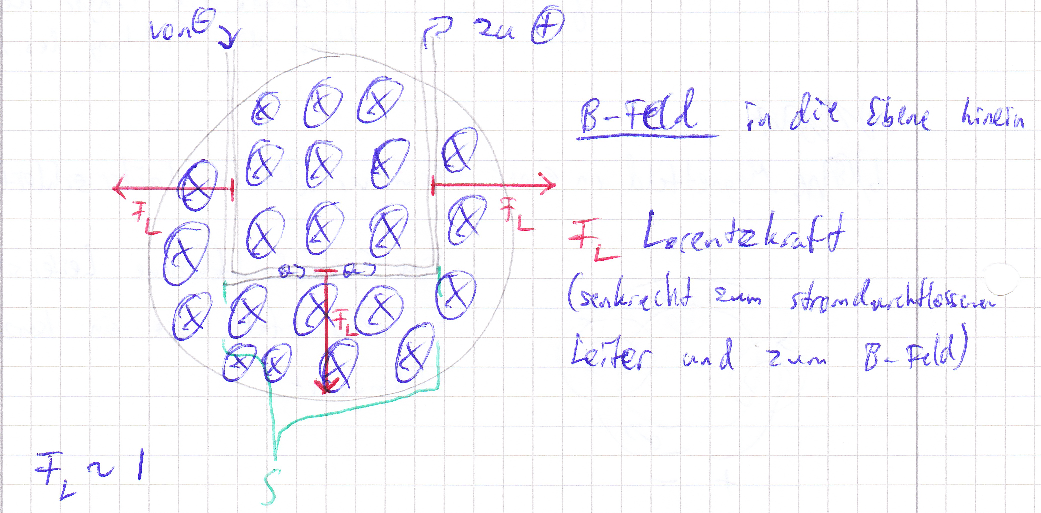 von ⊖ zu ⊕
B-Feld in die Ebene hinein
F_L F_L
F_L Lorentzkraft
(senkrecht zum stromdurchflossenen
F_L
Leiter und zum B-Feld)
F_L ~ I
s